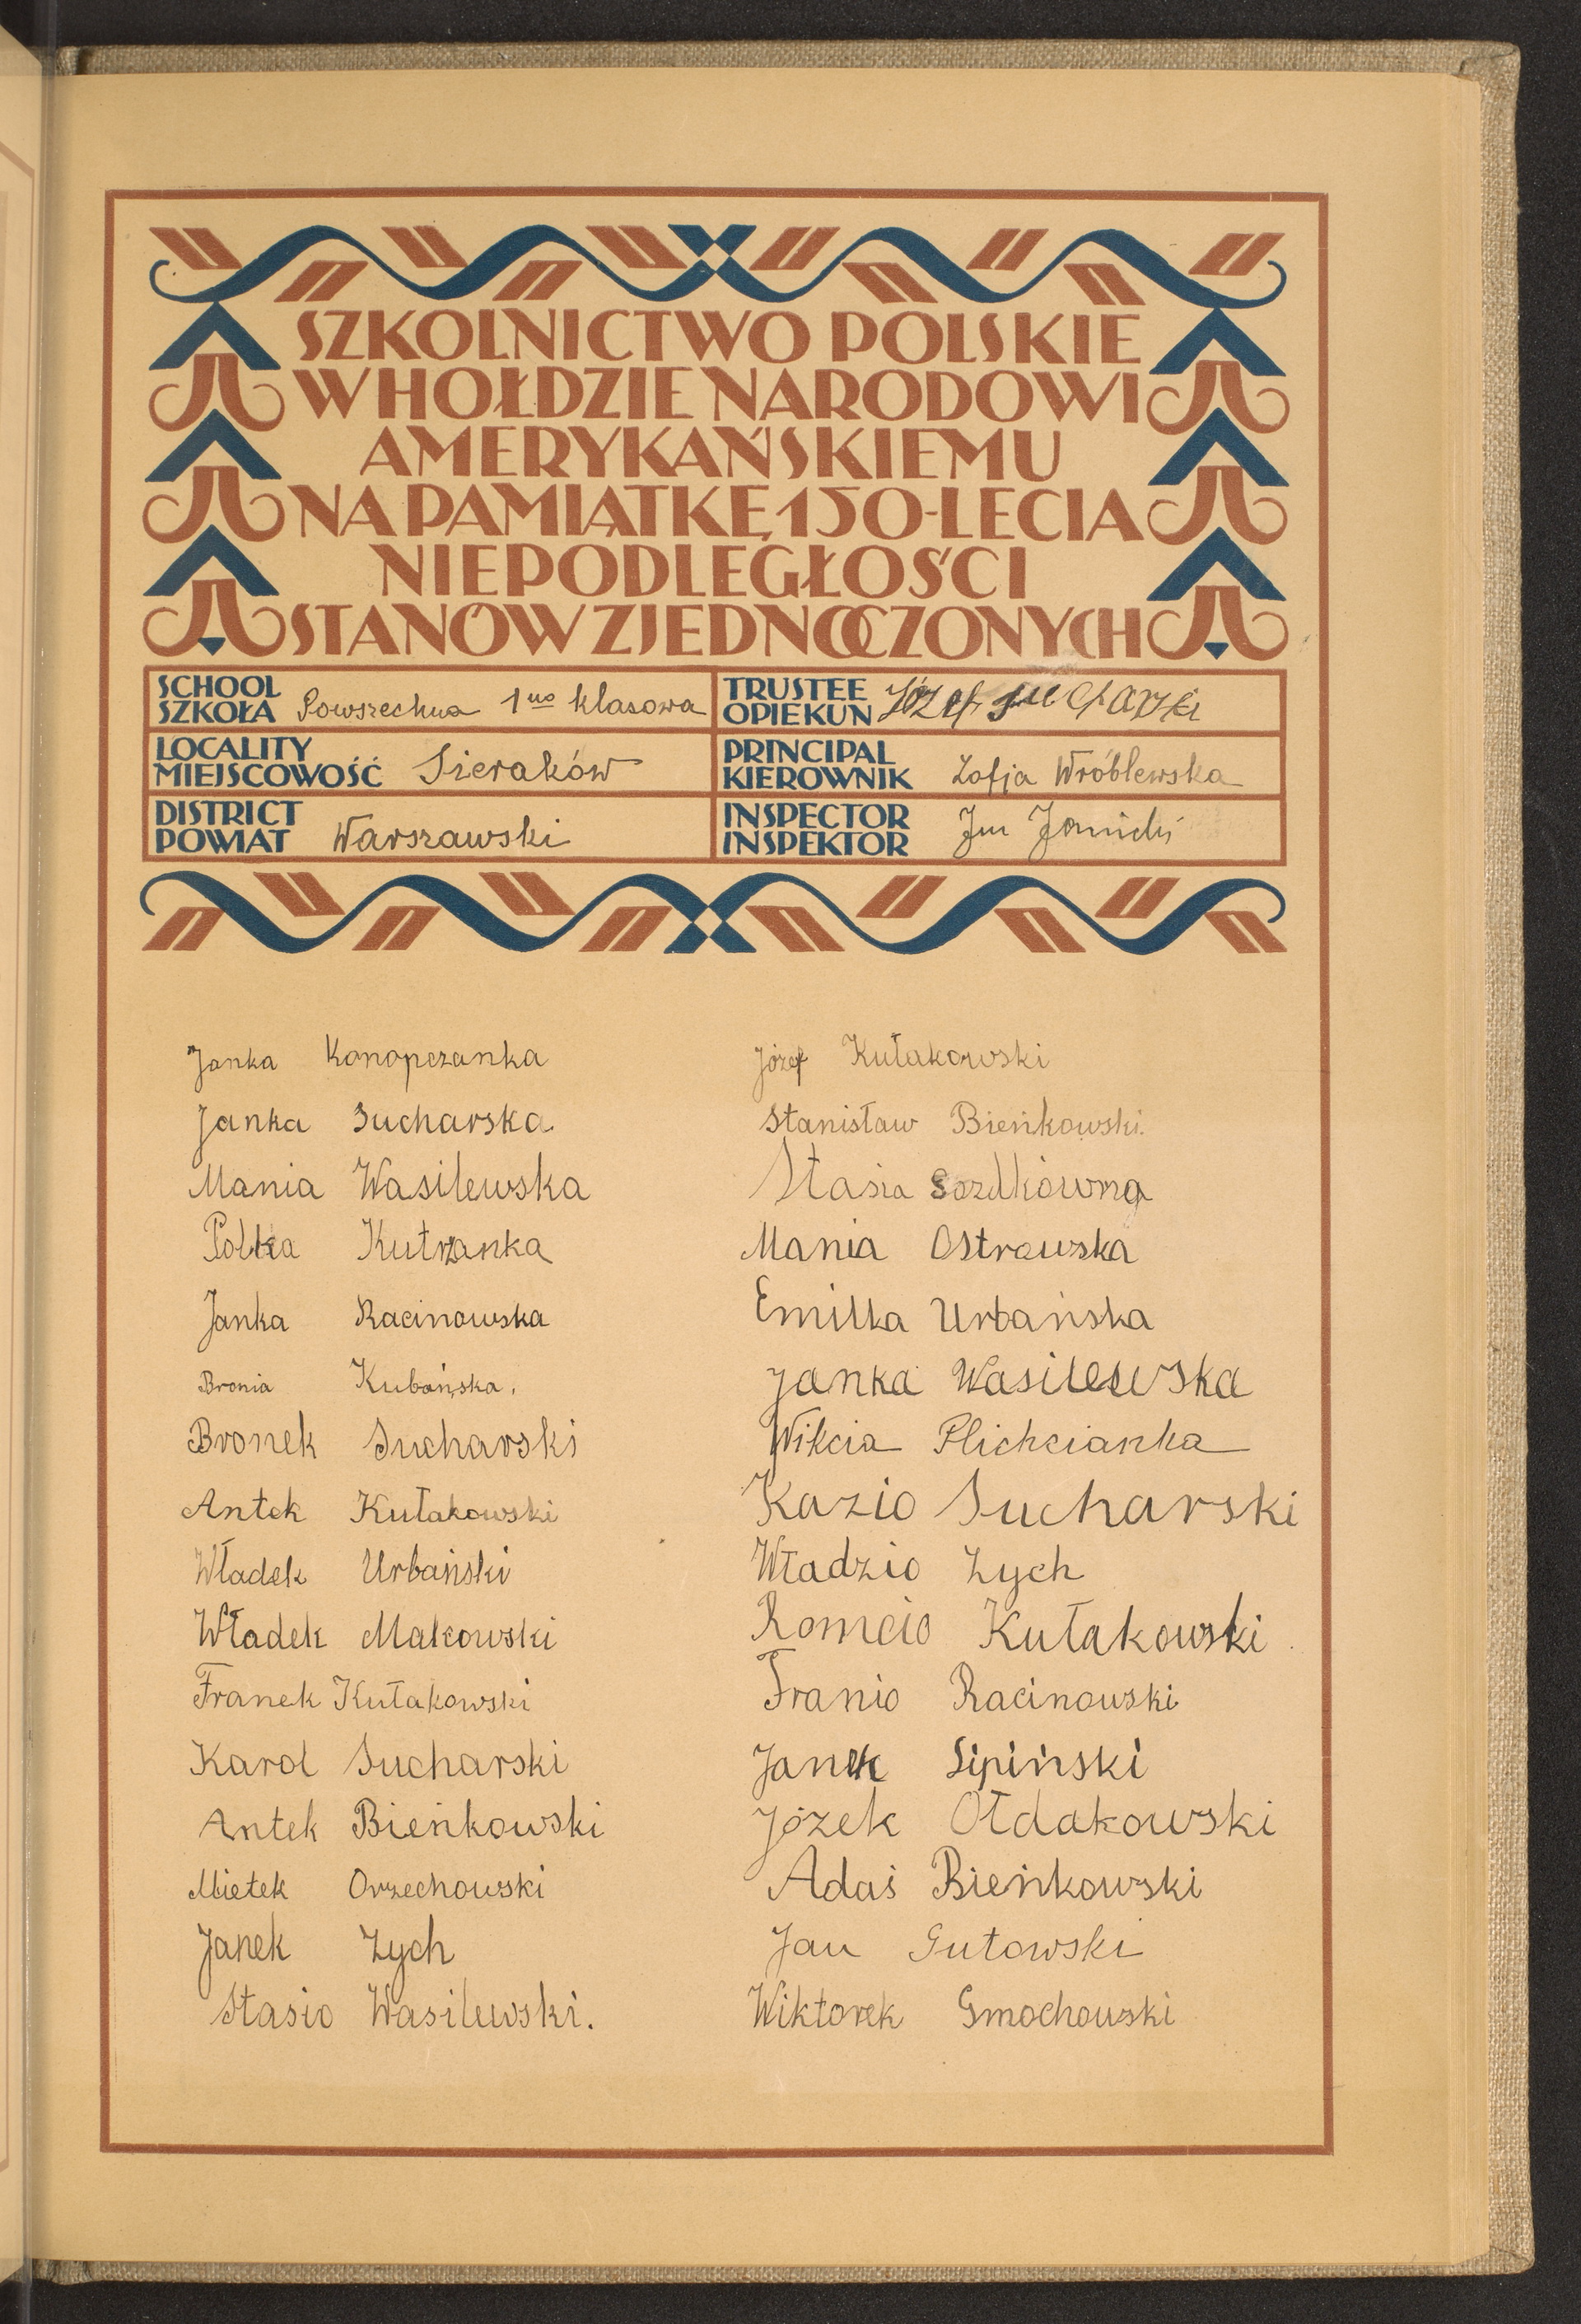 SZKOLNICTWO POLSKIE
W HOŁDZIE NARODOWI
AMERYKAŃSKIEMU
NA PAMIĄTKĘ 150-LECIA
NIEPODLEGŁOŚCI
STANÓW ZJEDNOCZONYCH
SCHOOL
SZKOŁA Powszechna 1no klasowa
LOCALITY
MIEJSCOWOŚĆ Sieraków
DISTRICT
POWIAT Warszawski
TRUSTEE
OPIEKUN Józef Sucharski
PRINCIPAL
KIEROWNIK Zofja Wróblewska
INSPECTOR
INSPEKTOR
Janka Konopczanka
Janka Sucharska
Mania Wasilewska
Polka Kutrzanka
Janka Racinowska
Bronia Kubańska.
Bronek Sucharski
Antek Kułakowski
Władek Urbański
Władek Makowski
Franek Kułakowski
Karol Sucharski
Antek Bieńkowski
Mietek Orzechowski
Janek Zych
Stasio Wasilewski.
Józef Kułakowski
Stanisław Bieńkowski.
Stasia
Mania Ostrowska
Emilka Urbańska
Janka Wasilewska
Wikcia Plichcianka
Kazio Sucharski
Władzio Zych
Romcio Kułakowski.
Franio Racinowski
Janek Lipiński
Józek Ołdakowski
Adaś Bieńkowski
Jan Gutowski
Wiktorek Gmochowski